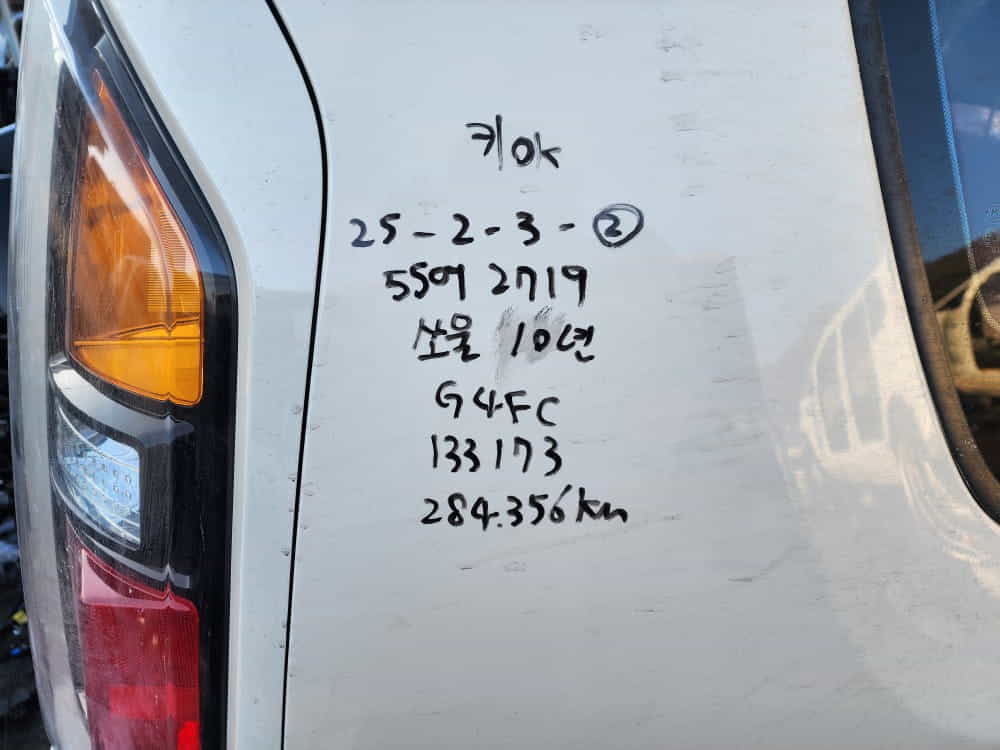 키 OK
25-2-3-②
55어 2719
쏘울 10년
G4FC
133173
284.356km